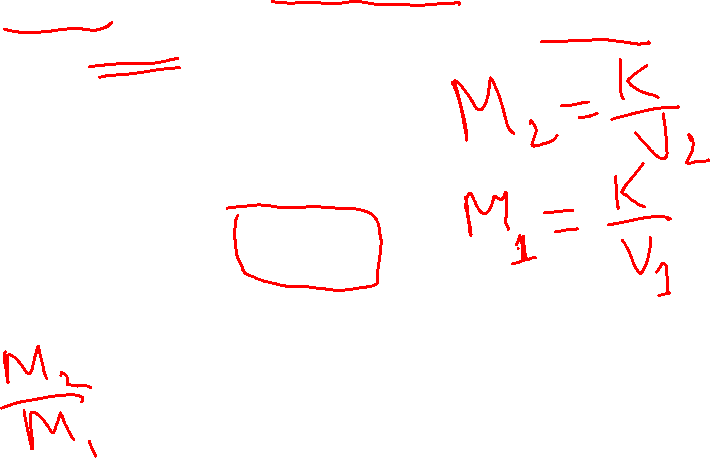 M₂ = K/V₂
M₁ = K/V₁
M₂/M₁